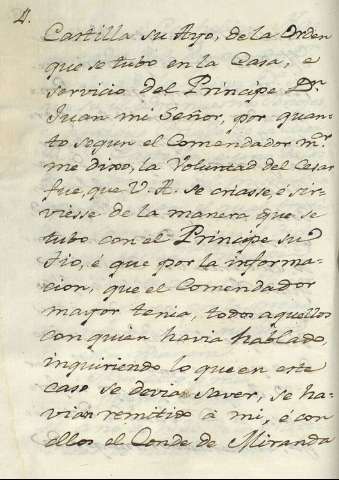 4.
Castilla su Ayo, de la Orden
que se tubo en la Casa, e
servicio del Principe Dn.
Juan mi Señor, por quan-
to segun el Comendador mr.
me dixo, la Voluntad del Cesar
fue, que V. A. se criasse é sir-
viesse de la manera que se
tubo con el Principe su
Tio, é que por la informa-
cion, que el Comendador
mayor tenia, todos aquellos
con quien havia hablado,
inquiriendo lo que en este
caso se devia saver, se ha-
vian remitido à mi, é con
ellos el Conde de Miranda